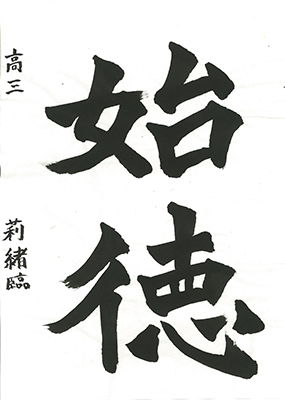 始
徳
高三
莉緒臨